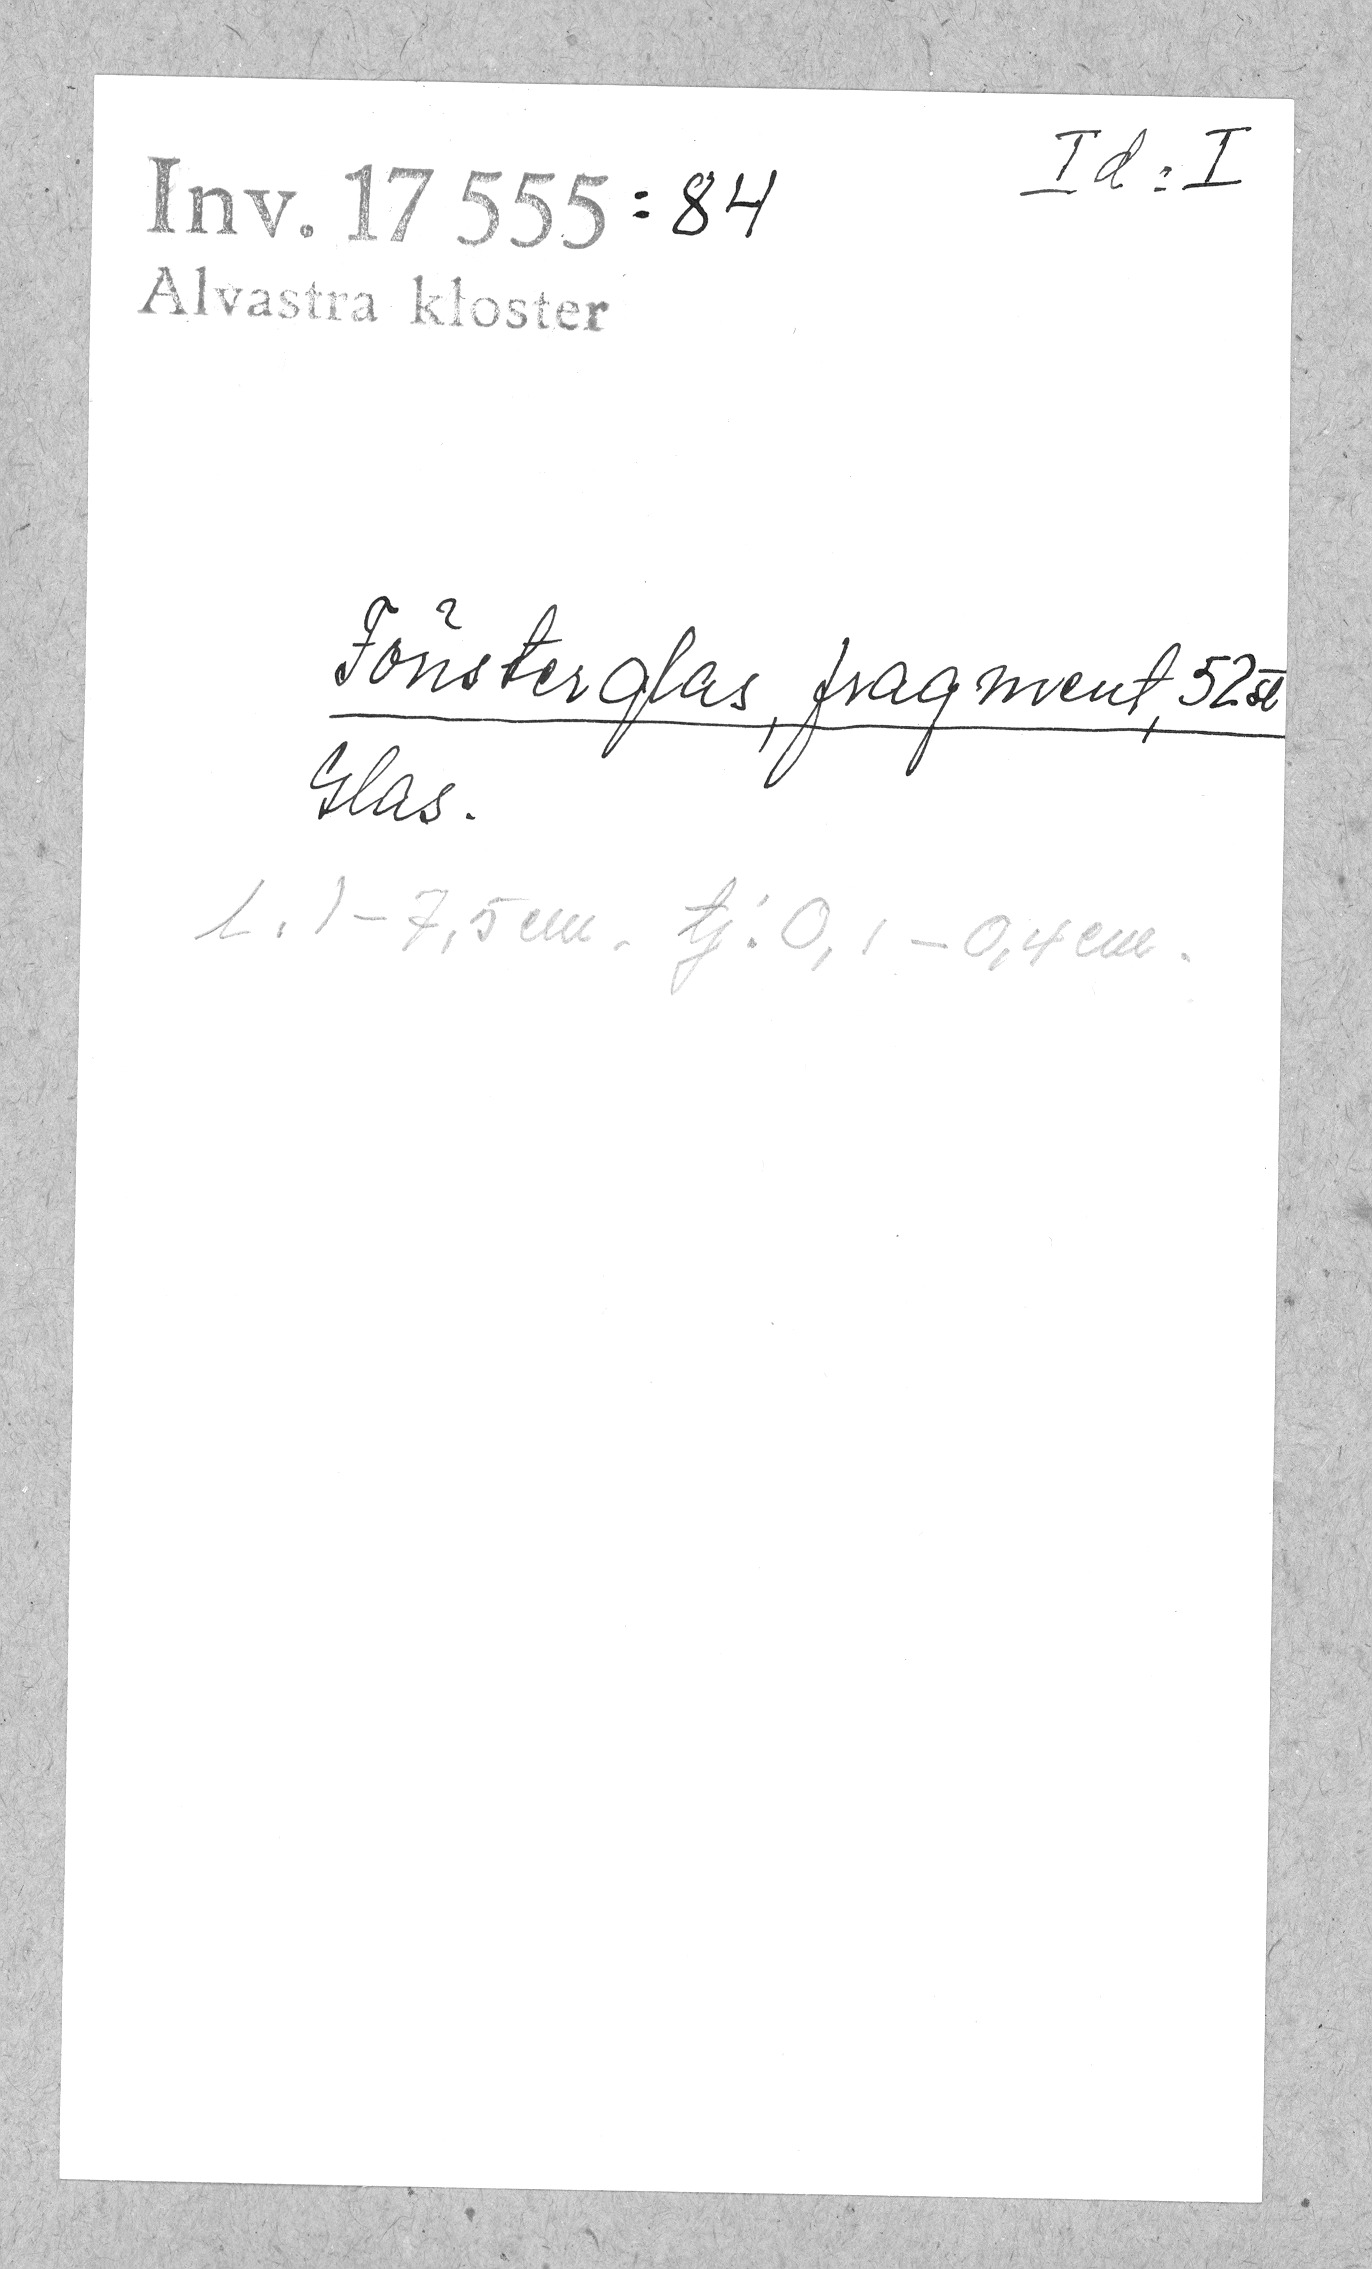 Id: I
Inv. 17 555:84
Alvastra kloster
Fönsterglas, fragment, 52 st
Glas.
L. 1-7,5 cm. tj: 0,1-0,4 cm.